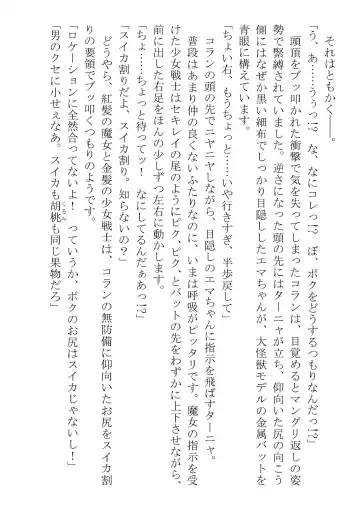 それはともかく――。
「う、あ……うぅっ!? な、なにコレっ!? ぼ、ボクをどうするつもりなんだっ!?」
頭頂をブッ叩かれた衝撃で気を失ってしまったコランは、目覚めるとマングリ返しの姿
勢で緊縛されていました。逆さになった頭の先にはターニャが立ち、仰向いた尻の向こう
側にはなぜか黒い細布でしっかり目隠ししたエマちゃんが、大怪獣モデルの金属バットを
青眼に構えています。
「ちょい右、もうちょっと……いや行きすぎ、半歩戻して」
コランの頭の先でニヤニヤしながら、目隠しのエマちゃんに指示を飛ばすターニャ。
普段はあまり仲の良くないふたりなのに、いまは呼吸がピッタリです。魔女の指示を受
けた少女戦士はセキレイの尾のようにピク、ピク、とバットの先をわずかに上下させながら、
前に出した右足をほんの少しずつ左右に動かします。
「ちょ……ちょっと待ってッ! なにしてるんだぁあっ!?」
「スイカ割りだよ、スイカ割り。知らないの?」
どうやら、紅髪の魔女と金髪の少女戦士は、コランの無防備に仰向いたお尻をスイカ割
りの要領でブッ叩くつもりのようです。
「ロケーションに全然合ってないよ! っていうか、ボクのお尻はスイカじゃないし!」
「男のクセに小せぇなあ。スイカも胡桃も同じ果物だろ」